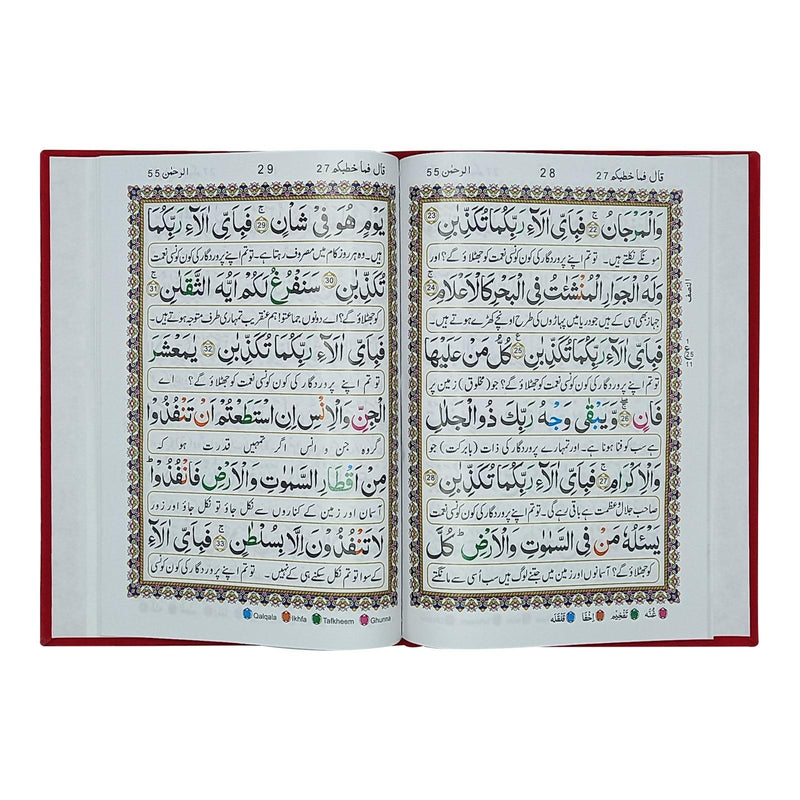 قال فما خطبكم 27
28
الرحمٰن 55
وَالْمَرْجَانُ ۚ﴿22﴾ فَبِاَىِّ اٰلَآءِ رَبِّكُمَا تُكَذِّبٰنِ ﴿23﴾
مونگے نکلتے ہیں۔ تو تم اپنے پروردگار کی کون کونسی نعمت کو جھٹلاؤ گے؟ اور
وَلَهُ الْجَوَارِ الْمُنْشَئٰتُ فِى الْبَحْرِ كَالْاَعْلَامِ ۚ﴿24﴾
جہاز بھی اسی کے ہیں جو دریا میں پہاڑوں کی طرح اونچے کھڑے ہوتے ہیں۔
فَبِاَىِّ اٰلَآءِ رَبِّكُمَا تُكَذِّبٰنِ ﴿25﴾ كُلُّ مَنْ عَلَيْهَا
تو تم اپنے پروردگار کی کون کونسی نعمت کو جھٹلاؤ گے؟ جو (مخلوق) زمین پر
فَانٍ ۚ﴿26﴾ وَّيَبْقٰى وَجْهُ رَبِّكَ ذُو الْجَلٰلِ
ہے سب کو فنا ہونا ہے۔ اور تمہارے پروردگار کی ذات (بابرکت) جو
وَالْاِكْرَامِ ۚ﴿27﴾ فَبِاَىِّ اٰلَآءِ رَبِّكُمَا تُكَذِّبٰنِ ﴿28﴾
صاحب جلال و عظمت ہے باقی رہے گی۔ تو تم اپنے پروردگار کی کون کونسی نعمت
يَسْـَٔلُهٗ مَنْ فِى السَّمٰوٰتِ وَالْاَرْضِ ؕ كُلَّ
کو جھٹلاؤ گے؟ آسمانوں اور زمین میں جتنے لوگ ہیں سب اُسی سے مانگتے
النصف
غُنّہ تَفْخِیْم اِخْفَا قَلْقَلَہ
قال فما خطبكم 27
29
الرحمٰن 55
يَوْمٍ هُوَ فِىْ شَاْنٍ ۚ﴿29﴾ فَبِاَىِّ اٰلَآءِ رَبِّكُمَا
ہیں۔ وہ ہر روز کام میں مصروف رہتا ہے۔ تو تم اپنے پروردگار کی کون کونسی نعمت
تُكَذِّبٰنِ ﴿30﴾ سَنَفْرُغُ لَكُمْ اَيُّهَ الثَّقَلٰنِ ۚ﴿31﴾
کو جھٹلاؤ گے؟ اے دونوں جماعتو! ہم عنقریب تمہاری طرف متوجہ ہوتے ہیں۔
فَبِاَىِّ اٰلَآءِ رَبِّكُمَا تُكَذِّبٰنِ ﴿32﴾ يٰمَعْشَرَ
تو تم اپنے پروردگار کی کون کونسی نعمت کو جھٹلاؤ گے؟ اے
الْجِنِّ وَالْاِنْسِ اِنِ اسْتَطَعْتُمْ اَنْ تَنْفُذُوْا
گروہ جن و انس اگر تمہیں قدرت ہو کہ
مِنْ اَقْطَارِ السَّمٰوٰتِ وَالْاَرْضِ فَانْفُذُوْا ؕ
آسمان اور زمین کے کناروں سے نکل جاؤ تو نکل جاؤ اور زور
لَا تَنْفُذُوْنَ اِلَّا بِسُلْطٰنٍ ۚ﴿33﴾ فَبِاَىِّ اٰلَآءِ
کے سوا تو تم نکل سکتے ہی کے نہیں۔ تو تم اپنے پروردگار کی کون کونسی
Qalqala Ikhfa Tafkheem Ghunna